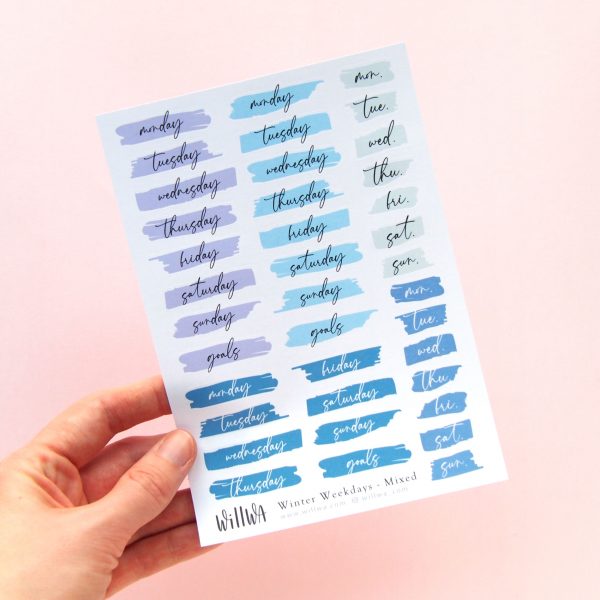 monday
tuesday
wednesday
thursday
friday
saturday
sunday
goals
monday
tuesday
wednesday
thursday
friday
saturday
sunday
goals
mon.
tue.
wed.
thu.
fri.
sat.
sun.
monday
tuesday
wednesday
thursday
friday
saturday
sunday
goals
mon.
tue.
wed.
thu.
fri.
sat.
sun.
WillWA
Winter Weekdays - Mixed
www.willwa.com @willwa_com